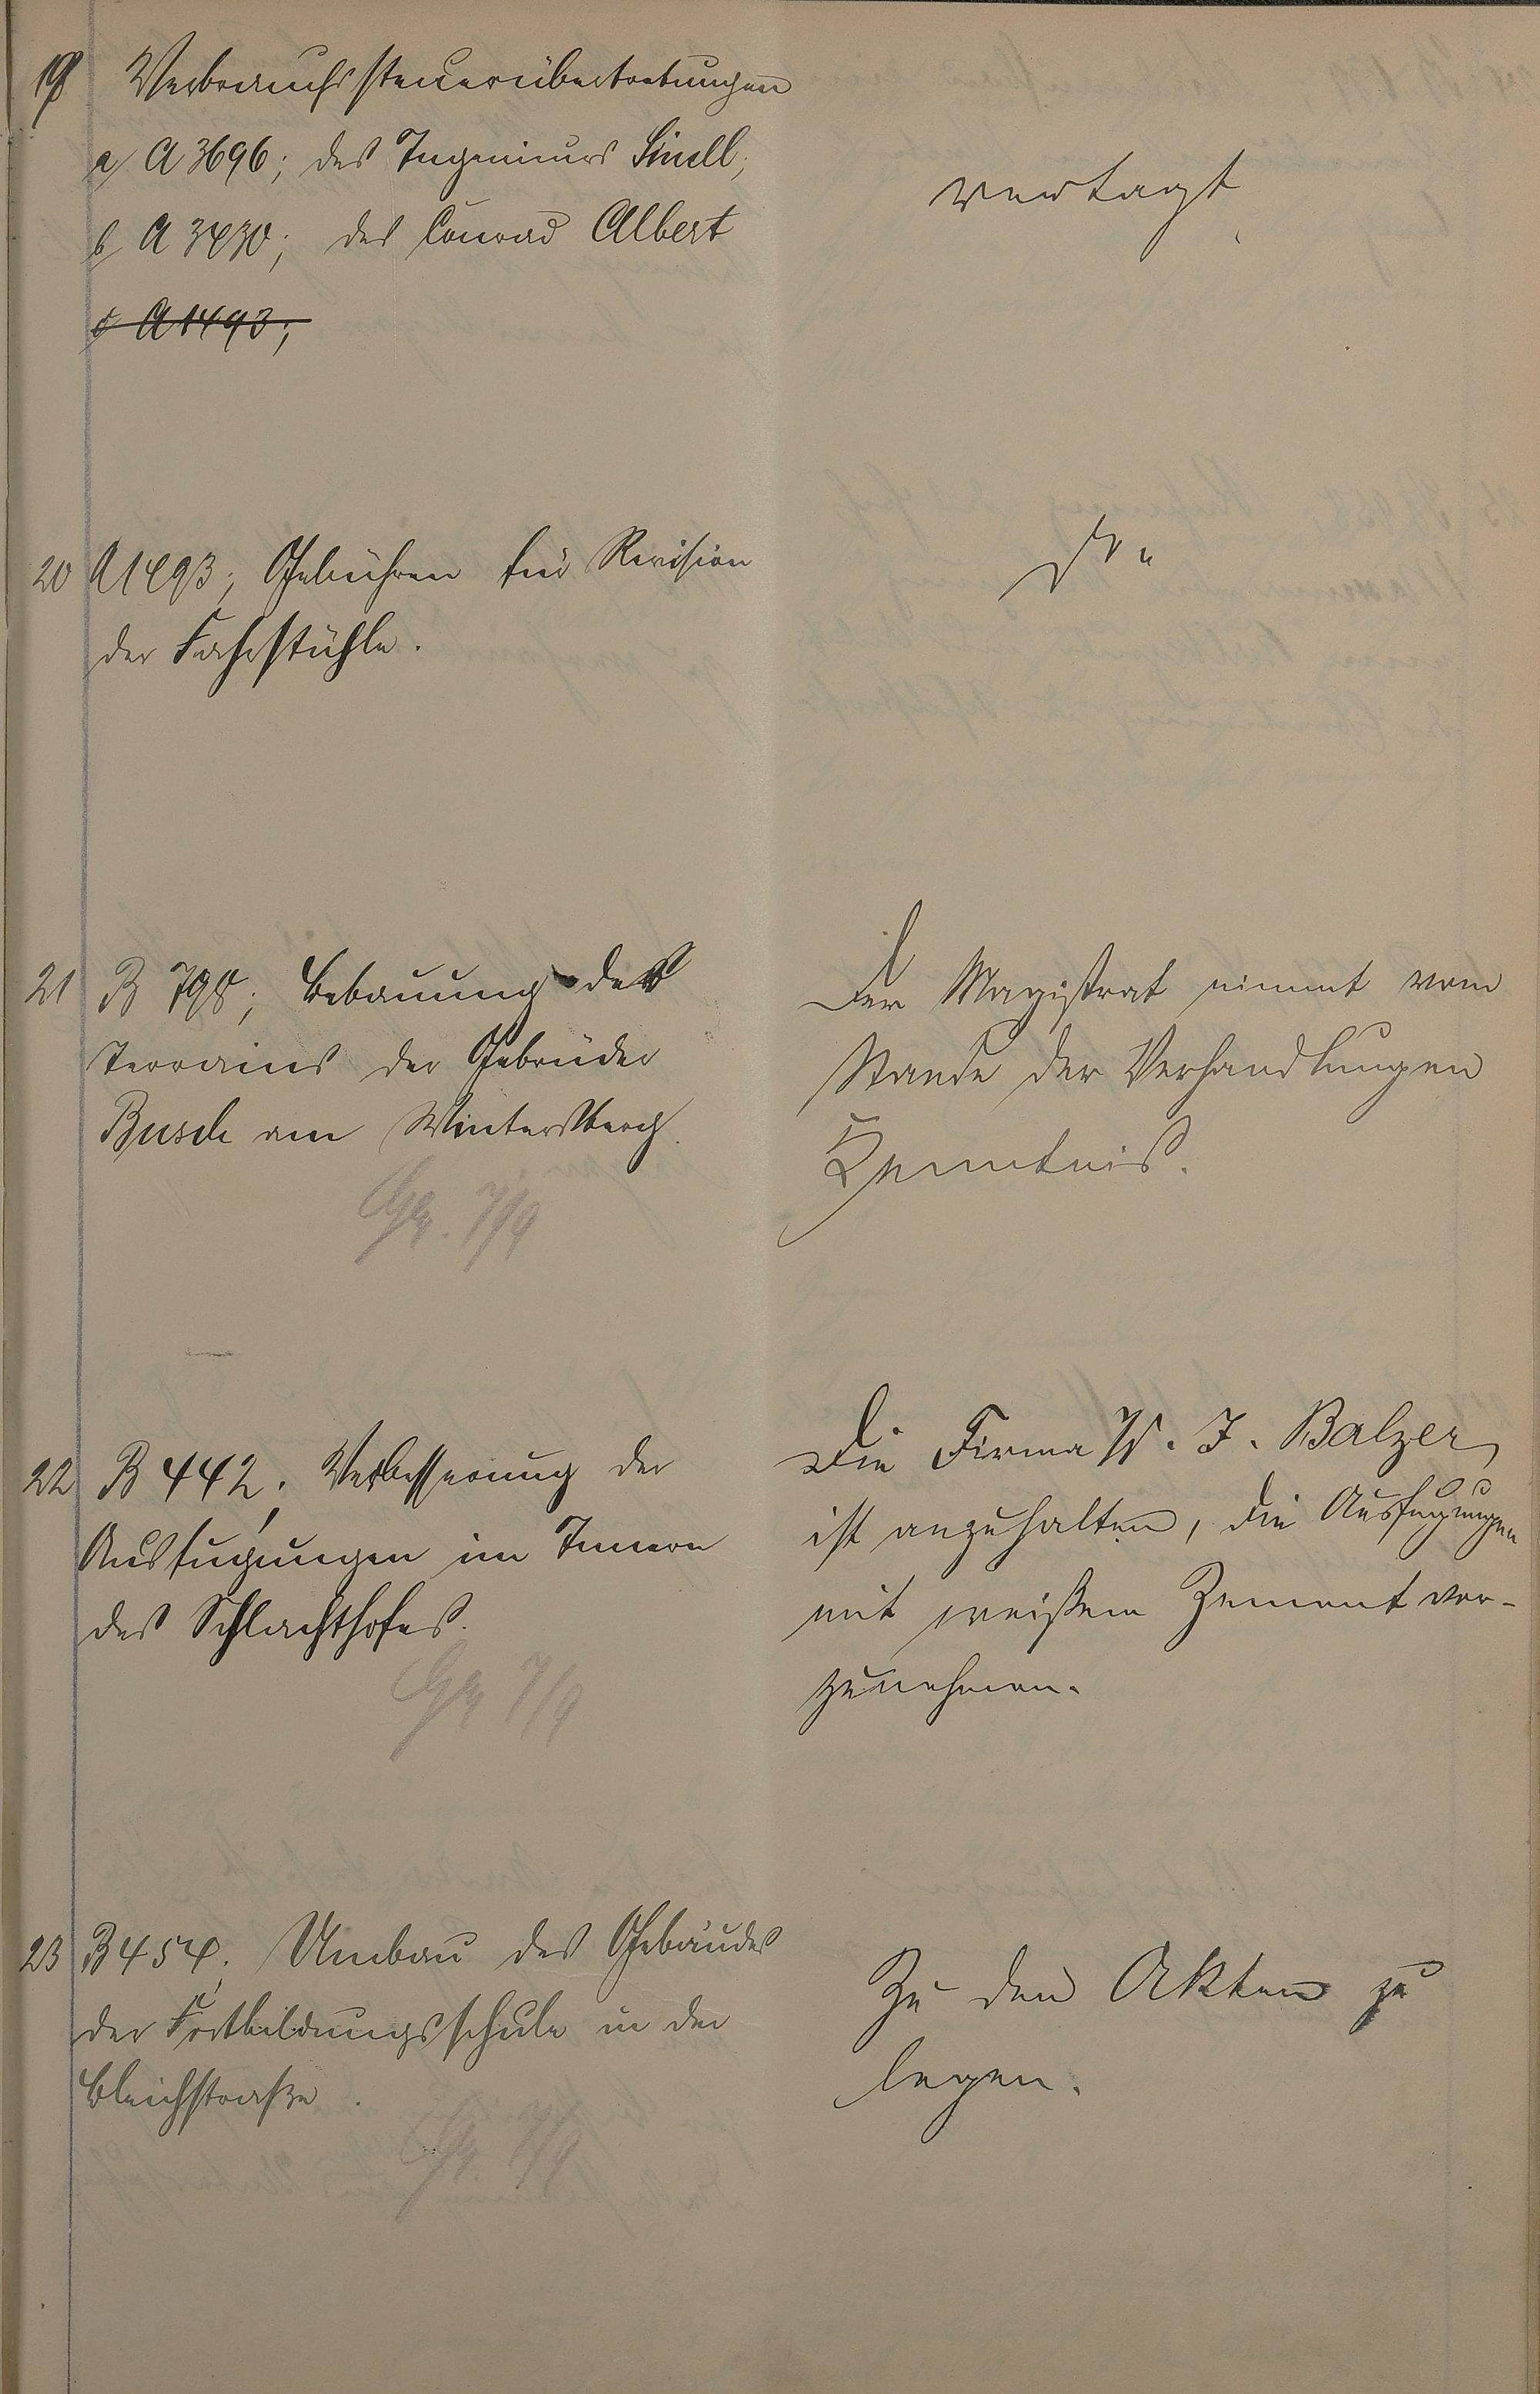 19 Verbrauchssteuerübertretungen
a/ A 3696; des Ingenieurs Sinell,
b/ A 3430; des Conrad Albert
c A 1493;
vertagt
20 A 1493; Gebühren für Revision
der Fahrstühle.
21 B 798; Bebauung des
Terrains der Gebrüder
Busch am Wintersberg.
Gr. 7/9
Der Magistrat nimmt vom
Stande der Verhandlungen
Kenntnis.
22 B 442; Verbesserung der
Ausfugungen im Innern
des Schlachthofes.
Gr 7/9
Die Firma W. J. Balzer
ist anzuhalten, die Ausfugungen
mit weißem Zement vor-
zunehmen.
23 B 454; Umbau des Gebäudes
der Fortbildungsschule in der
Bleichstraße.
Gr. 7/9
Zu den Akten zu
legen.